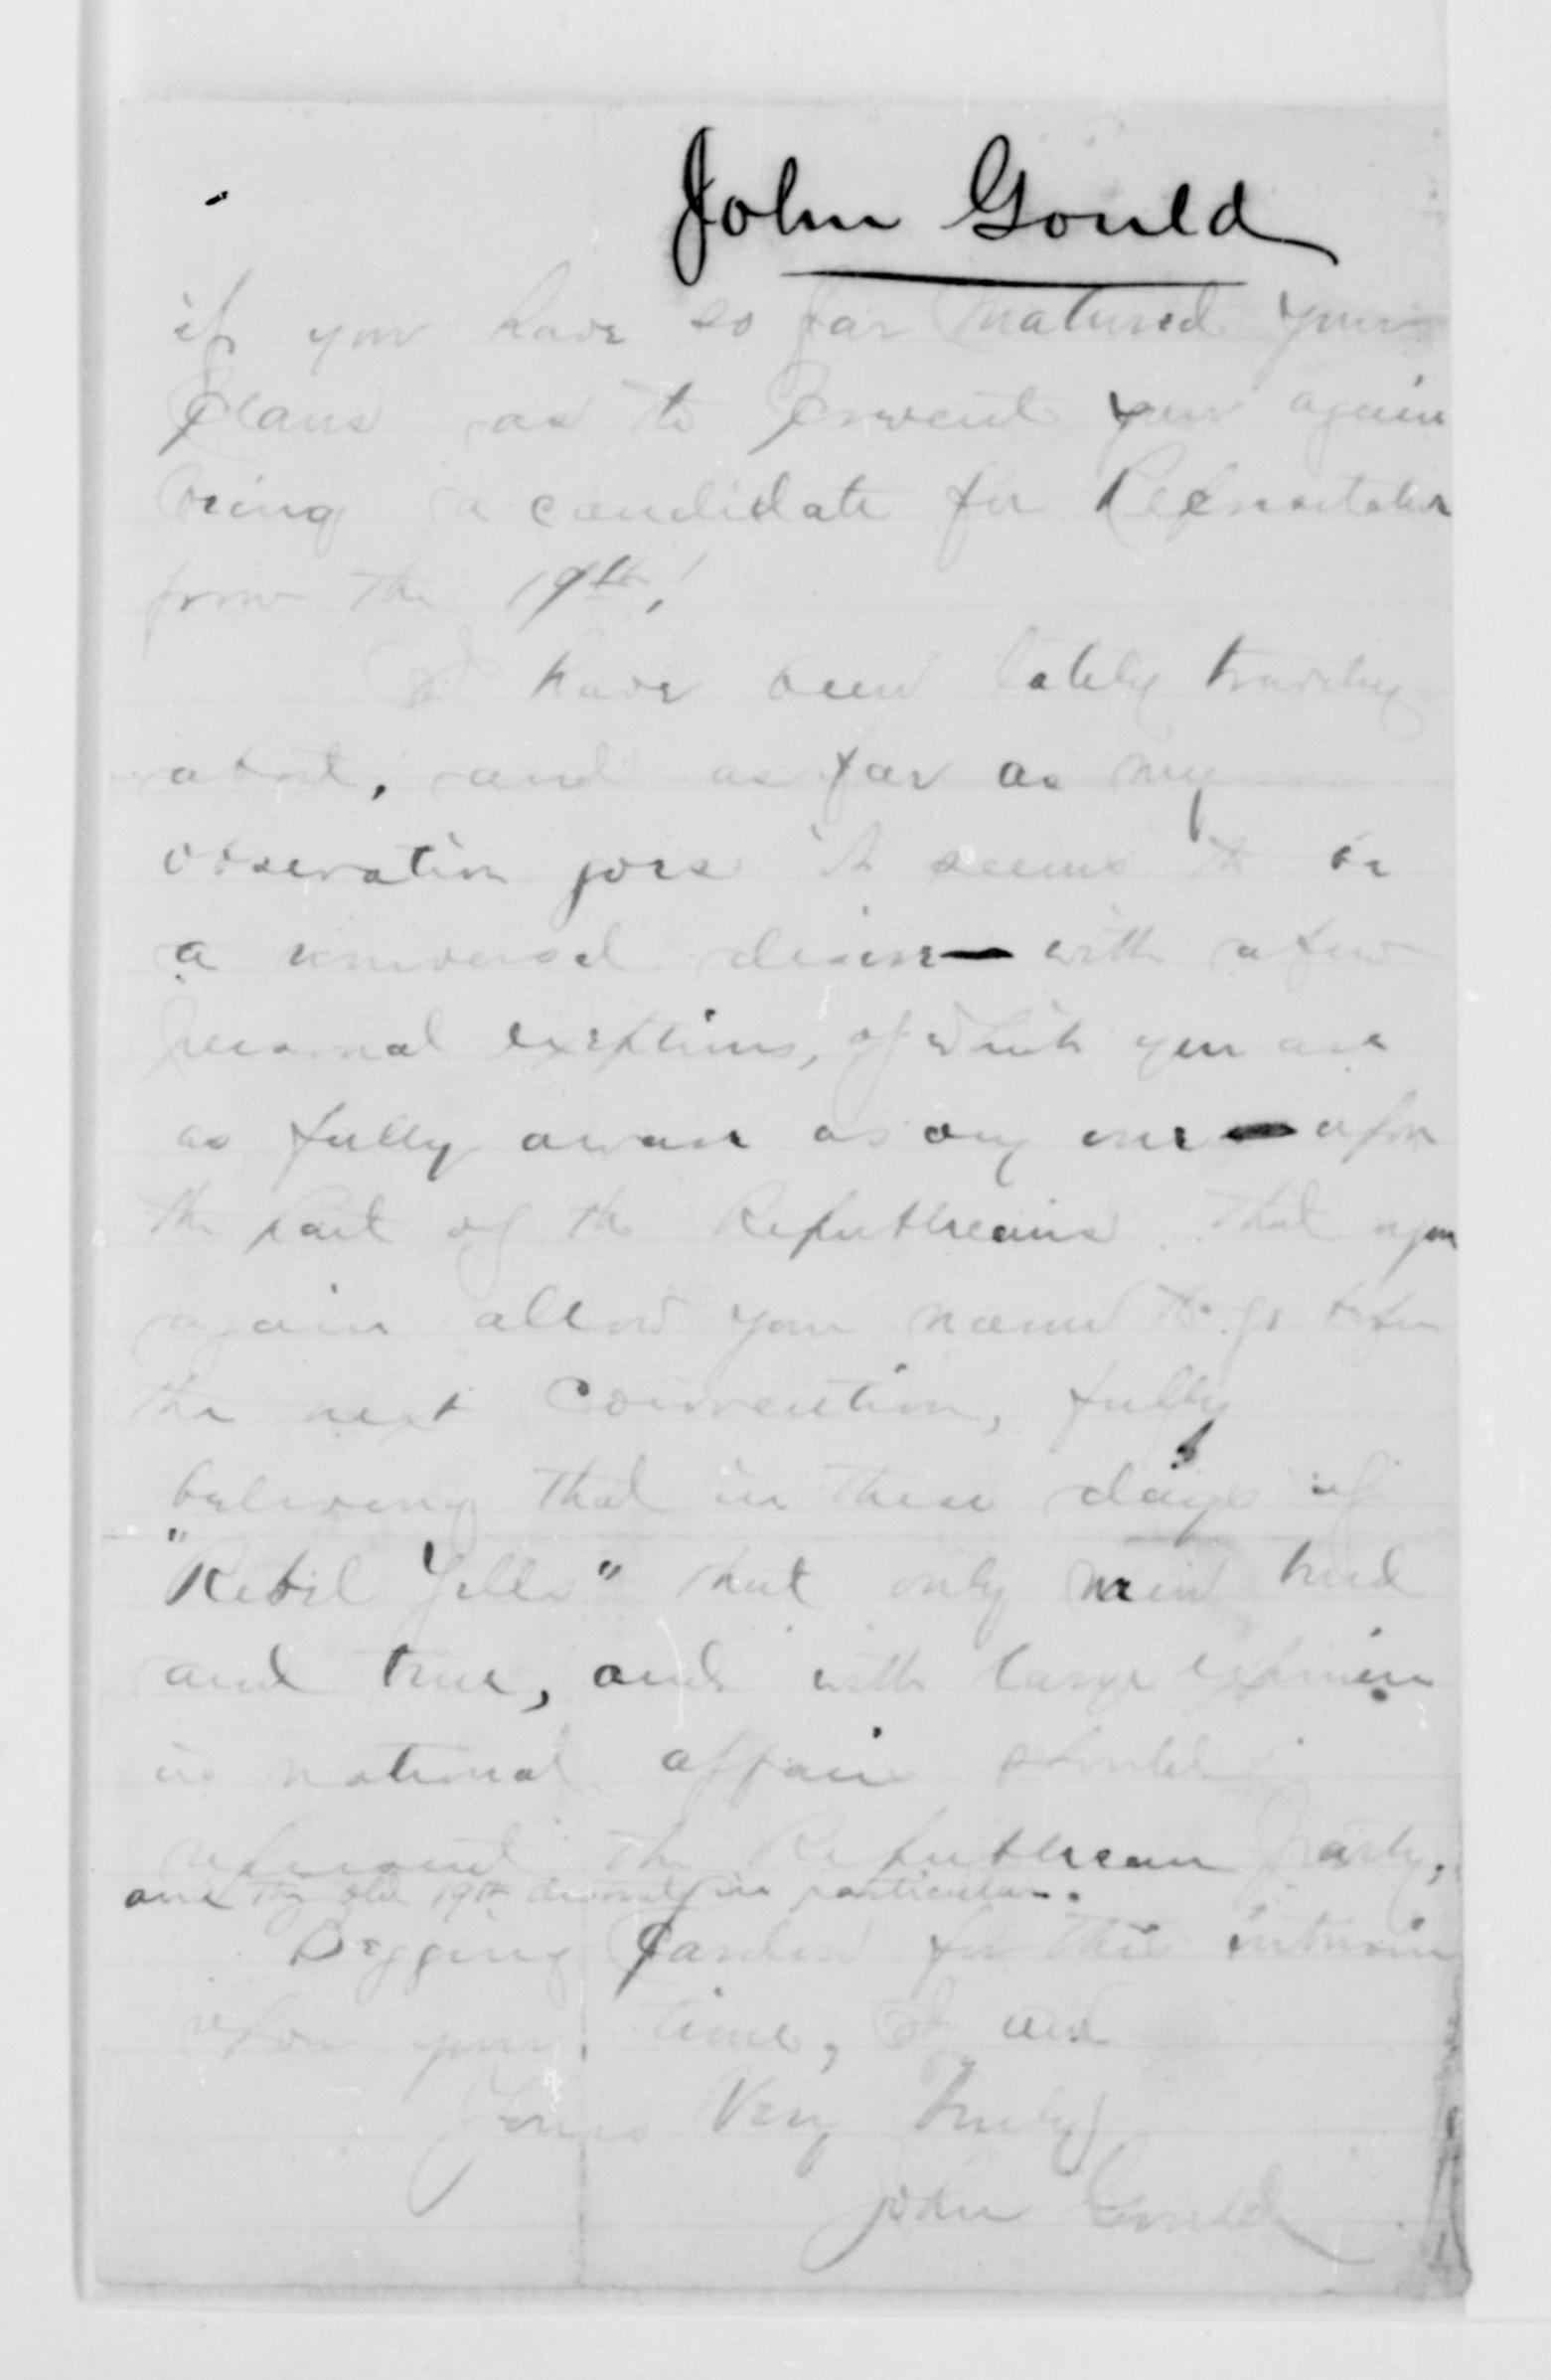 John Gould
if you have so far matured your
Plans as to prevent your again
being a candidate for
from the 19th!
I have been lately traveling
about, and as far as my
observation goes it seems to be
a universal desire — with a few
personal exceptions, of which you are
as fully aware as any one — upon
the part of the Republicans that you
again allow your name to go before
the next Convention, fully
believing that in these days of
"Rebel Yells" that only men tried
and true, and with large experience
in national affairs should
represent the Republican Party,
and the old 19th district in particular.
Begging pardon for this intrusion
upon your time, I am
Yours Very Truly
John Gould